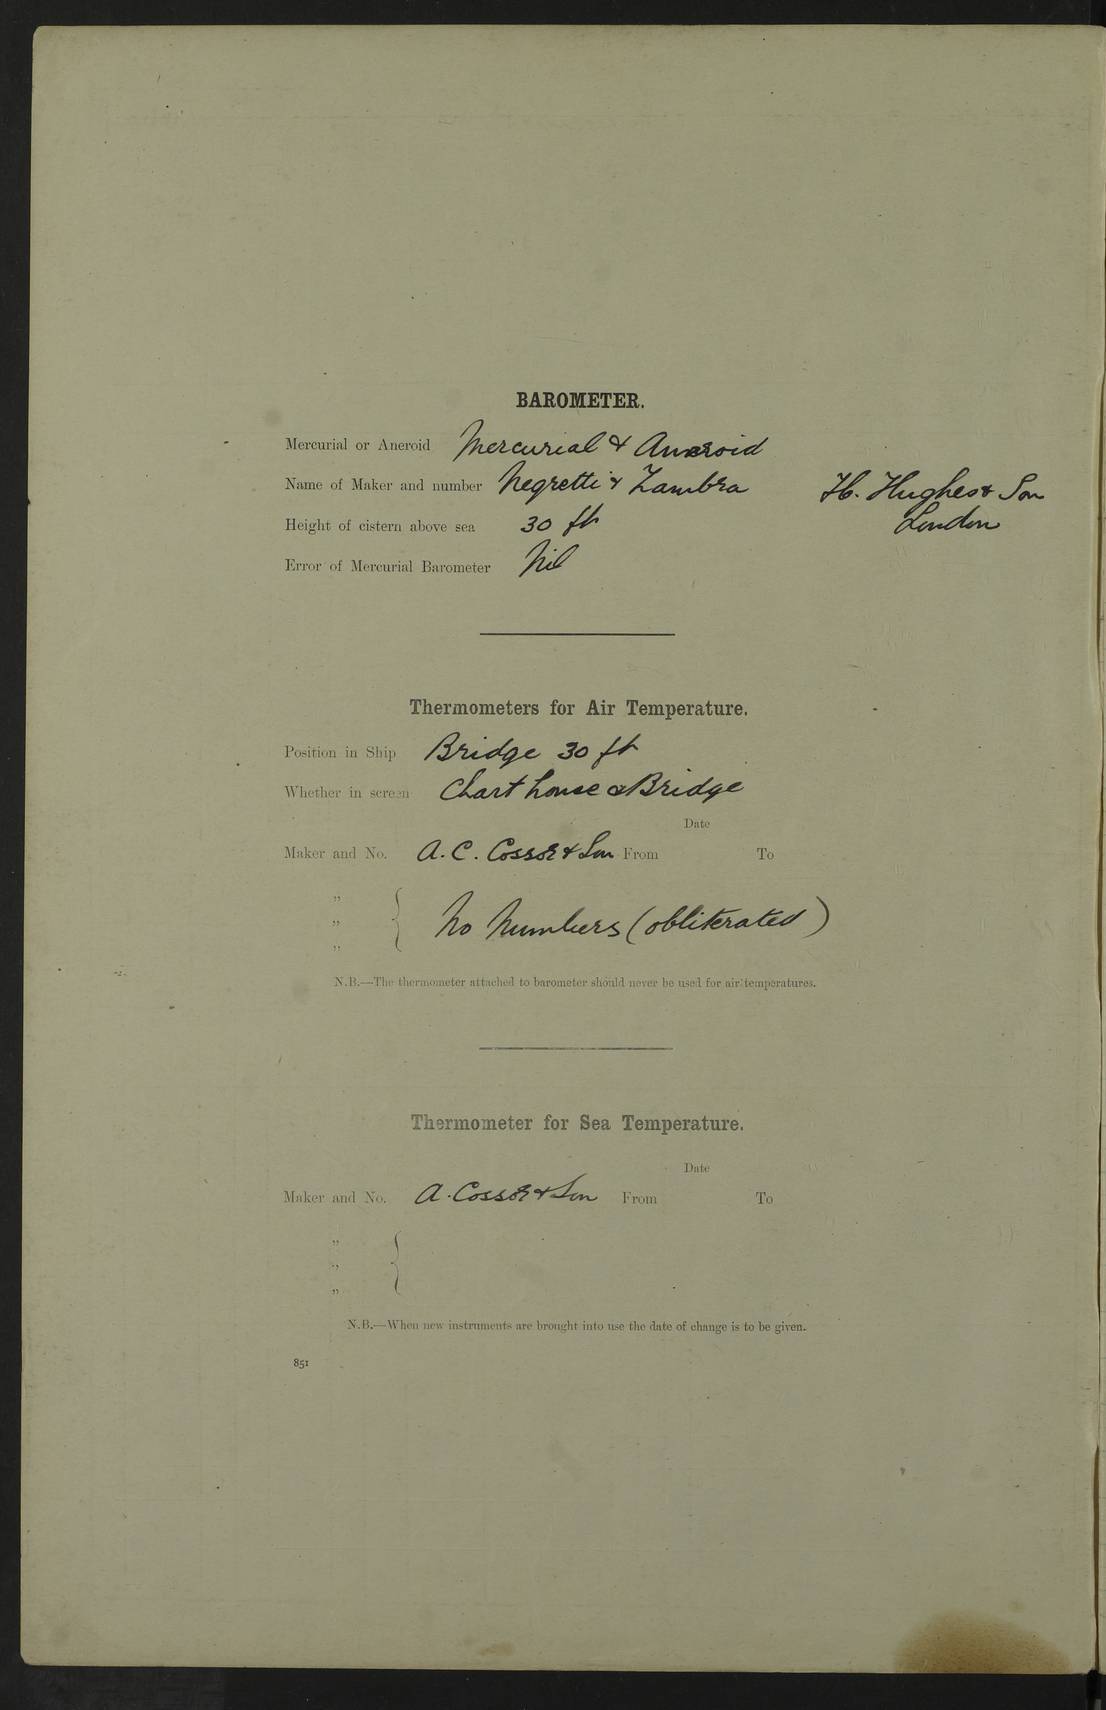 BAROMETER.
Mercurial or Aneroid Mercurial & Aneroid
Name of Maker and number Negretti & Zambra H. Hughes & Son
London
Height of cistern above sea 30 ft
Error of Mercurial Barometer Nil
Thermometers for Air Temperature.
Position in Ship Bridge 30 ft
Whether in screen Chart house & Bridge
Date
Maker and No. A. C. Cossor & Son From To
„
„ { No Numbers (obliterated)
„
N.B.—The thermometer attached to barometer should never be used for air temperatures.
Thermometer for Sea Temperature.
Date
Maker and No. A. Cossor & Son From To
„
„ {
„
N.B.—When new instruments are brought into use the date of change is to be given.
851